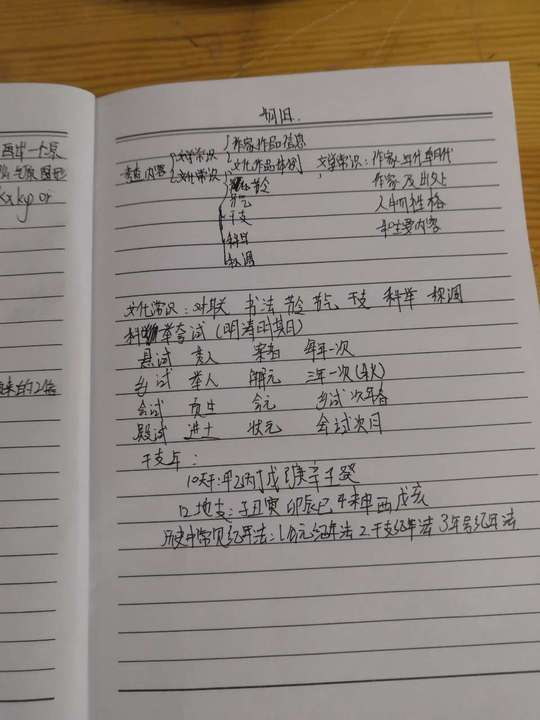 画出一个原
kxkyor
来的12倍
考查内容
文学常识
文化常识
作家作品信息
文化作品体例
节令
节气
干支
科举
称谓
文学常识:作家与什年代
作客及出处
人物性格
和主要内容
文化常识:对联 书法 节令 节气 干支 科举 称谓
科举考试(明清时期)
县试 秀人 案者 每年一次
乡试 举人 解元 三年一次(秋)
会试 贡生 会元 乡试次年春
殿试 进士 状元 会试次月
干支年:
10天干:甲乙丙丁戊己庚辛壬癸
12地支:子丑寅卯辰巳午未申酉戌亥
历史中常见纪年法:1.公元纪年法 2.干支纪年法 3.年号纪年法